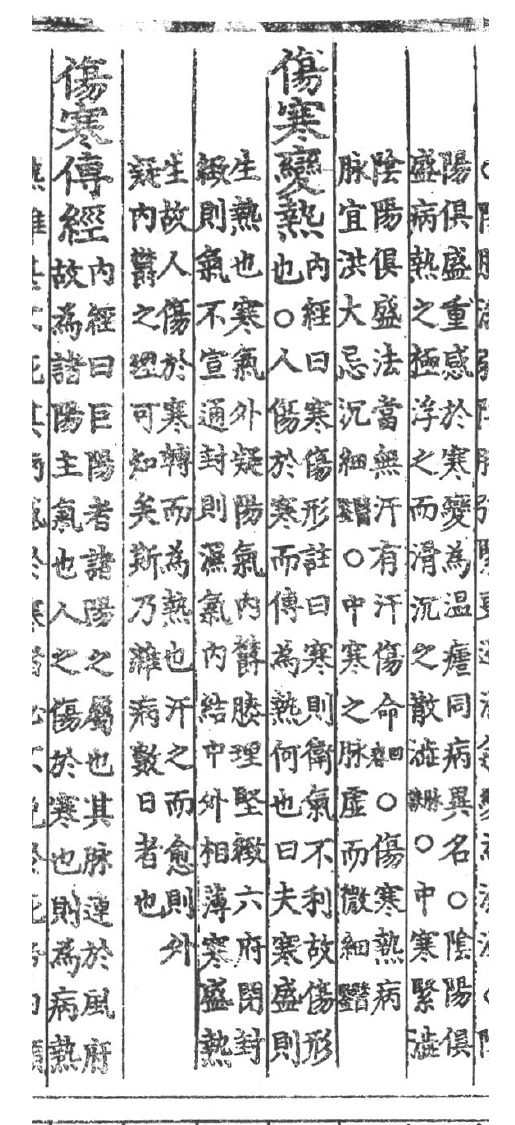 陽俱盛重感於寒變為溫瘧同病異名○陰陽俱
盛病熱之極浮之而滑沉之散澁脉訣○中寒緊澁
陰陽俱盛法當無汗有汗傷命回春○傷寒熱病
脉宜洪大忌沉細醫鑑○中寒之脉虛而微細醫鑑
傷寒變熱
內經曰寒傷形註曰寒則衛氣不利故傷形
也○人傷於寒而傳為熱何也曰夫寒盛則
生熱也寒氣外凝陽氣內欝腠理堅緻六府閉封
緻則氣不宣通封則濕氣內結中外相薄寒盛熱
生故人傷於寒轉而為熱也汗之而愈則外
凝內欝之理可知矣斯乃雜病數日者也
傷寒傳經
內經曰巨陽者諸陽之屬也其脉連於風府
故為諸陽主氣也人之傷於寒也則為病熱